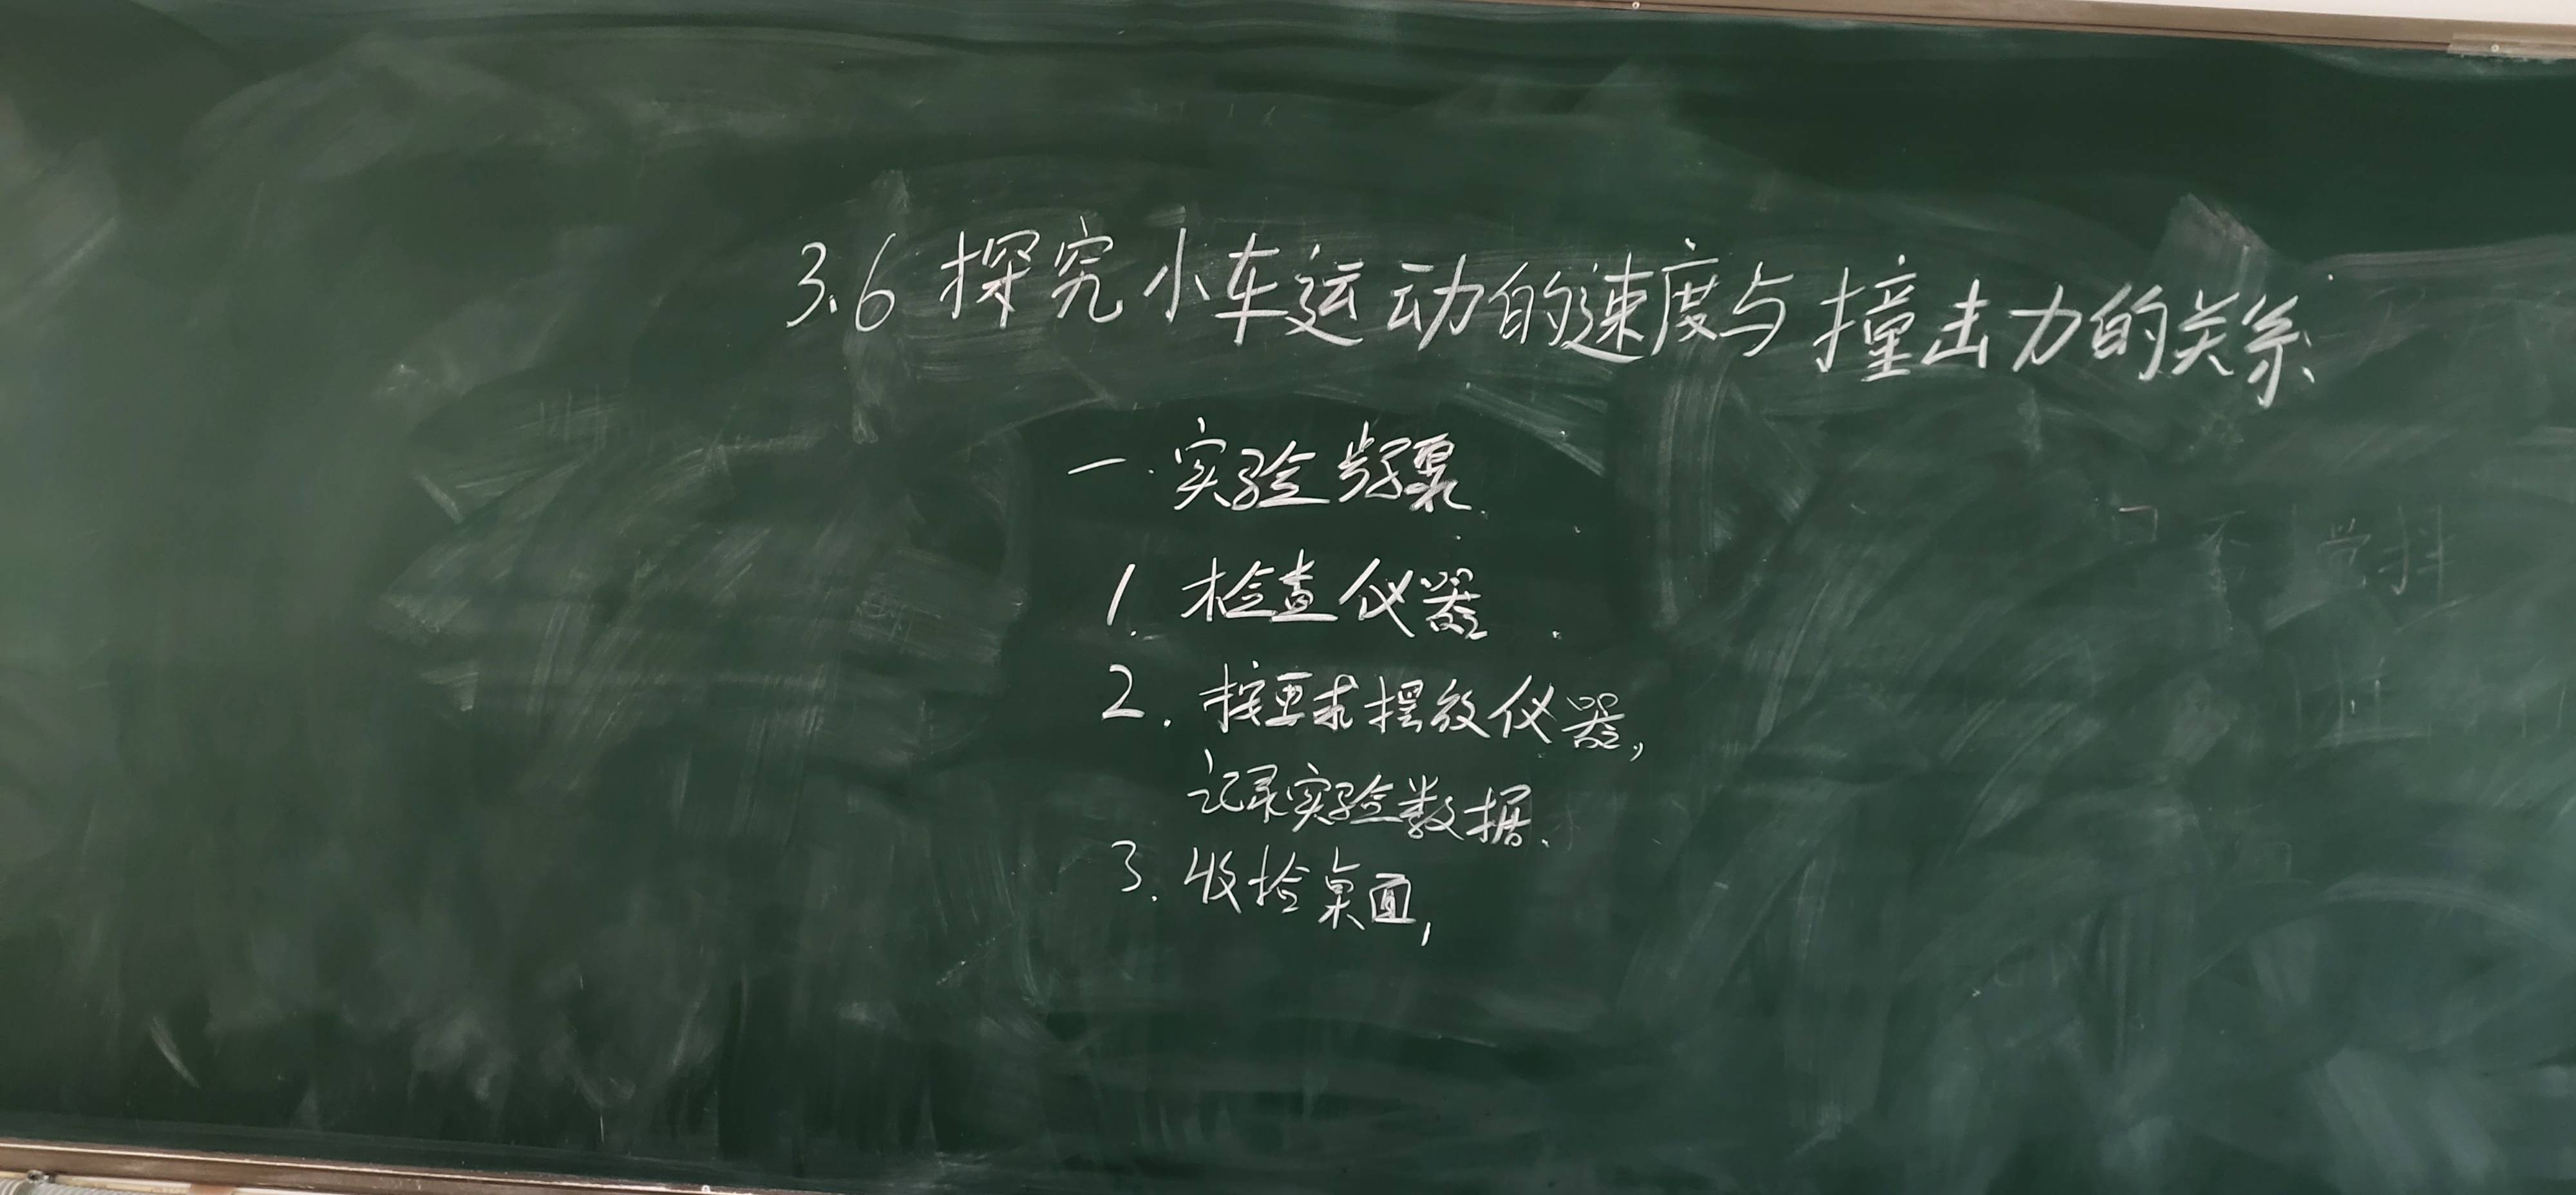 3.6 探究小车运动的速度与撞击力的关系
一. 实验步骤.
1. 检查仪器.
2. 按要求摆放仪器,
记录实验数据.
3. 收捡桌面,